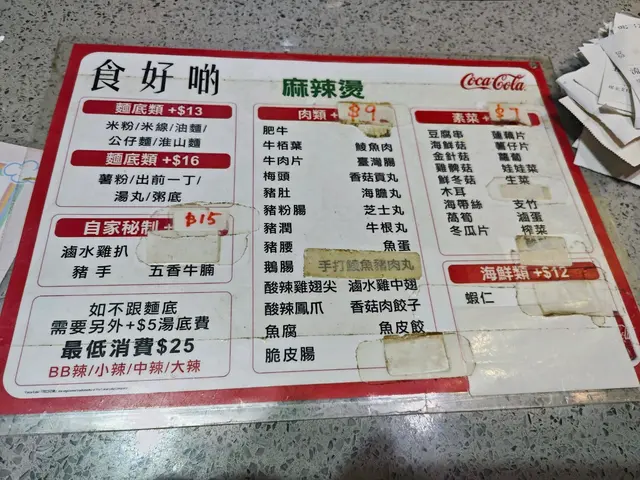 食好啲
麻辣燙
Coca-Cola
麵底類 +$13
米粉/米線/油麵/
公仔麵/淮山麵
麵底類 +$16
薯粉/出前一丁/
湯丸/粥底
自家秘制 +
$15
滷水雞扒
豬手 五香牛腩
如不跟麵底
需要另外+$5湯底費
最低消費$25
BB辣/小辣/中辣/大辣
肉類 +$9
肥牛
牛栢葉 鯪魚肉
牛肉片 臺灣腸
梅頭 香菇貢丸
豬肚 海膽丸
豬粉腸 芝士丸
豬潤 牛根丸
豬腰 魚蛋
鵝腸 手打鯪魚豬肉丸
酸辣雞翅尖 滷水雞中翅
酸辣鳳爪 香菇肉餃子
魚腐 魚皮餃
脆皮腸
素菜 +$7
豆腐串 蓮藕片
海鮮菇 薯仔片
金針菇 蘿蔔
雞髀菇 娃娃菜
鮮冬菇 生菜
木耳
海帶絲 支竹
萵筍 滷蛋
冬瓜片 榨菜
海鮮類 +$12
蝦仁